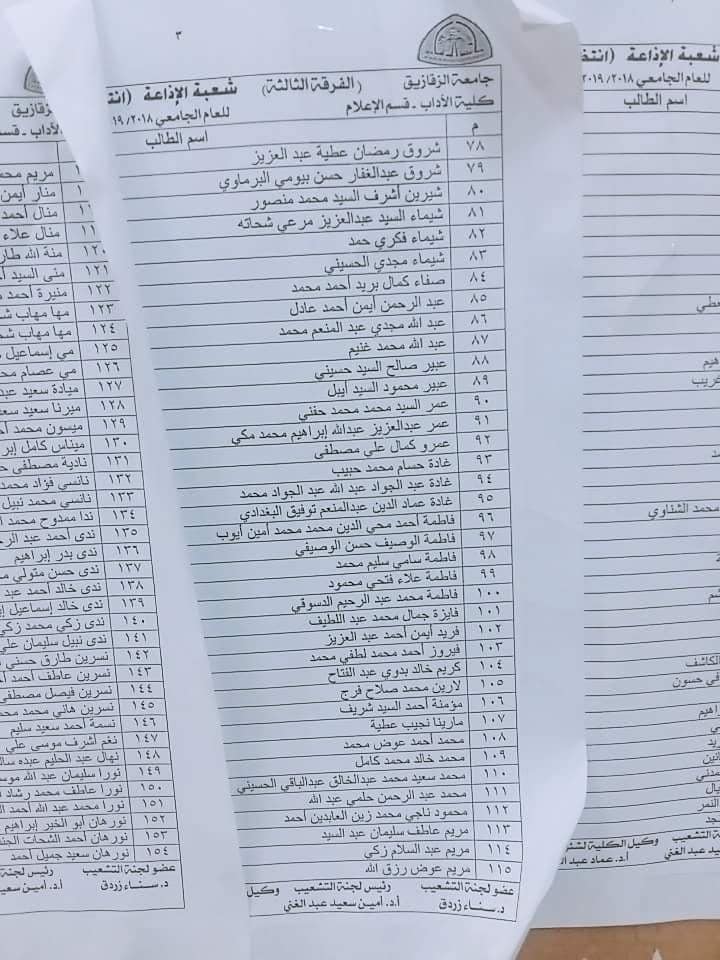 ٣
جامعة الزقازيق (الفرقة الثالثة) شعبة الإذاعة
كلية الآداب - قسم الإعلام للعام الجامعي ٢٠١٨
م اسم الطالب
٧٨ شروق رمضان عطية عبد العزيز
٧٩ شروق عبدالغفار حسن بيومي البرماوي
٨٠ شيرين أشرف السيد محمد منصور
٨١ شيماء السيد عبدالعزيز مرعي شحاته
٨٢ شيماء فكري حمد
٨٣ شيماء مجدي الحسيني
٨٤ صفاء كمال بريد أحمد محمد
٨٥ عبد الرحمن أيمن أحمد عادل
٨٦ عبد الله مجدي عبد المنعم محمد
٨٧ عبد الله محمد غنيم
٨٨ عبير صالح السيد حسيني
٨٩ عبير محمود السيد أيبل
٩٠ عمر السيد محمد محمد حفني
٩١ عمر عبدالعزيز عبدالله إبراهيم محمد مكي
٩٢ عمرو كمال علي مصطفى
٩٣ غادة حسام محمد حبيب
٩٤ غادة عبد الجواد عبد الله عبد الجواد محمد
٩٥ غادة عماد الدين عبدالمنعم توفيق البغدادي
٩٦ فاطمة أحمد محي الدين محمد محمد أمين أيوب
٩٧ فاطمة الوصيف حسن الوصيفي
٩٨ فاطمة سامي سليم محمد
٩٩ فاطمة علاء فتحي محمود
١٠٠ فاطمة محمد عبد الرحيم الدسوقي
١٠١ فايزة جمال محمد عبد اللطيف
١٠٢ فريد أيمن أحمد عبد العزيز
١٠٣ فيروز أحمد محمد لطفي محمد
١٠٤ كريم خالد بدوي عبد الفتاح
١٠٥ لارين محمد صلاح فرج
١٠٦ مؤمنة أحمد السيد شريف
١٠٧ مارينا نجيب عطية
١٠٨ محمد أحمد عوض محمد
١٠٩ محمد خالد محمد كامل
١١٠ محمد سعيد محمد عبدالخالق عبدالباقي الحسيني
١١١ محمد عبد الرحمن حلمي عبد الله
١١٢ محمود ناجي محمد زين العابدين أحمد
١١٣ مريم عاطف سليمان عبد السيد
١١٤ مريم عبد السلام زكي
١١٥ مريم عوض رزق الله
عضو لجنة التشعيب رئيس لجنة التشعيب وكيل
د. سناء زردق أ.د. أمين سعيد عبد الغني
شعبة الإذاعة
للعام الجامعي ٢٠١٩/٢٠١٨
اسم الطالب
محمد الشناوي
الكاشف
حسون
النمر
وكيل الكلية
أ.د. عماد عبد
الزقازيق
الآداب - قسم
مريم محمد
منار أيمن
منال أحمد
منال علاء
١٢٠ منة الله
١٢١ منى السيد
١٢٢ منيرة أحمد
١٢٣ مها مهاب
١٢٤ مها مهاب
١٢٥ مي إسماعيل
١٢٦ مي عصام
١٢٧ ميادة سعيد
١٢٨ ميرنا سعيد
١٢٩ ميسون محمد
١٣٠ ميناس كامل
١٣١ نادية مصطفى
١٣٢ نانسي فؤاد محمد
١٣٣ نانسي محمد نبيل
١٣٤ ندا ممدوح محمد
١٣٥ ندى أحمد عبد
١٣٦ ندى بدر إبراهيم
١٣٧ ندى حسن متولي
١٣٨ ندى خالد أحمد عبد
١٣٩ ندى خالد إسماعيل
١٤٠ ندى زكي محمد زكي
١٤١ ندى نبيل سليمان
١٤٢ نسرين طارق حسني
١٤٣ نسرين عاطف أحمد
١٤٤ نسرين فيصل مصطفى
١٤٥ نسرين هاني محمد
١٤٦ نسمة أحمد سعيد سليم
١٤٧ نغم أشرف موسى علي
١٤٨ نهال عبد الحليم عبده
١٤٩ نورا سليمان عبد الله
١٥٠ نورا عاطف محمد رشاد
١٥١ نورا محمد عبد الله أحمد
١٥٢ نورهان أبو الخير إبراهيم
١٥٣ نورهان أحمد الشحات
١٥٤ نورهان سعيد جميل أحمد
عضو لجنة التشعيب رئيس لجنة
د. سناء زردق أ.د. أمين سعيد